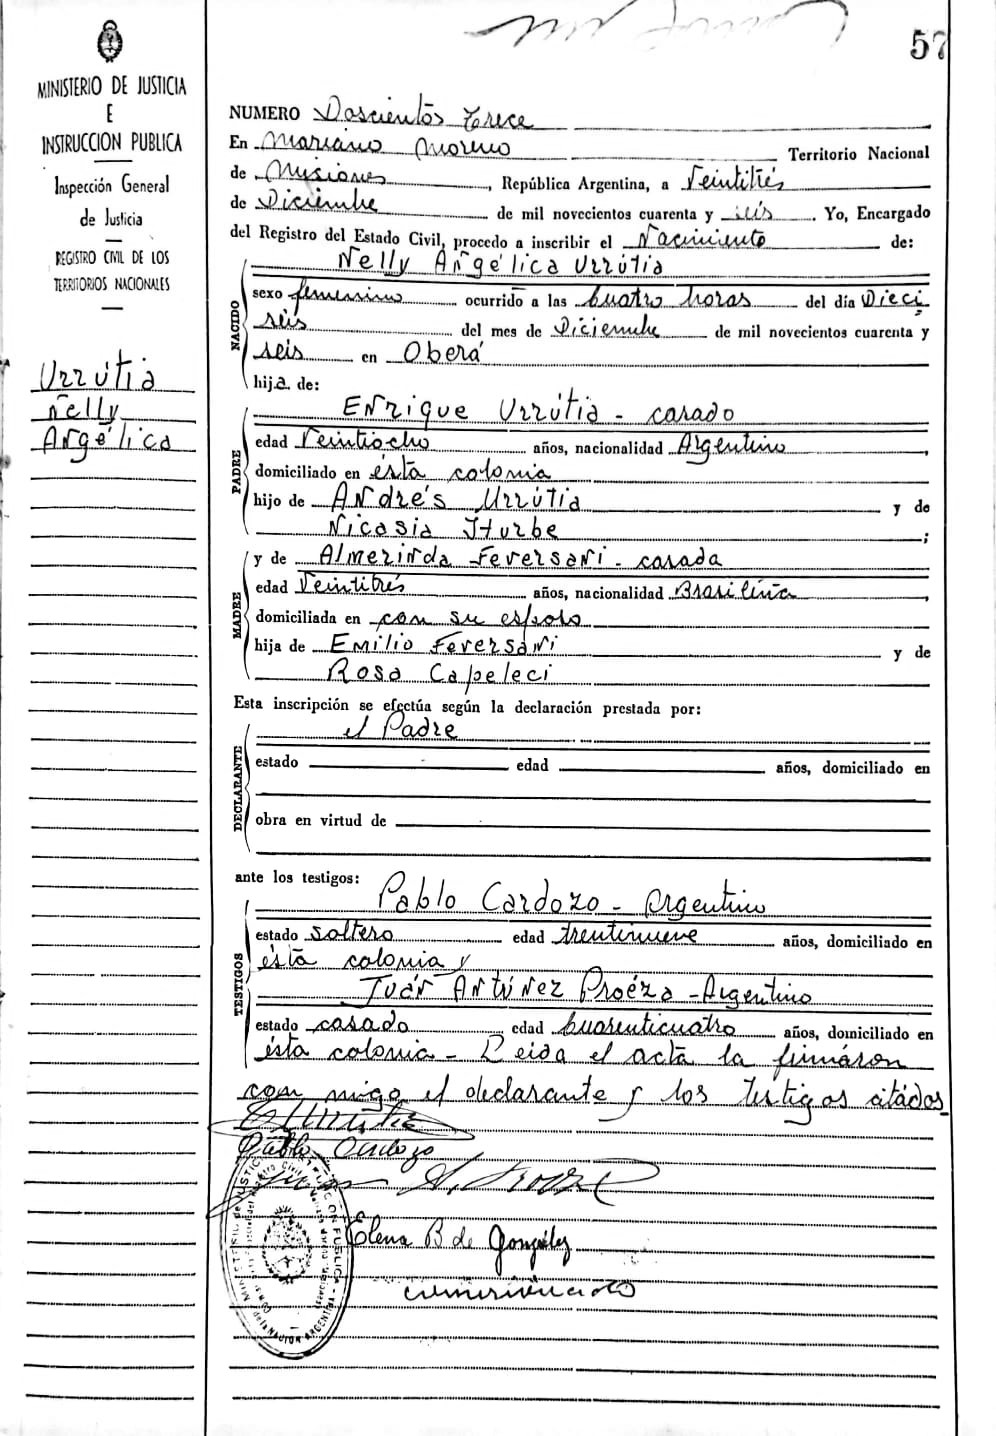 57
MINISTERIO DE JUSTICIA
E
INSTRUCCION PUBLICA
Inspección General
de Justicia
REGISTRO CIVIL DE LOS
TERRITORIOS NACIONALES
Urrútia
Nelly
Angélica
NUMERO Doscientos trece
En Mariano Moreno Territorio Nacional
de Misiones, República Argentina, a Veintitrés
de Diciembre de mil novecientos cuarenta y seis. Yo, Encargado
del Registro del Estado Civil, procedo a inscribir el Nacimiento de:
NACIDO
Nelly Angélica Urrútia
sexo femenino ocurrido a las Cuatro horas del día Dieci
seis del mes de Diciembre de mil novecientos cuarenta y
seis en Oberá
hija de:
PADRE
Enrique Urrútia - casado
edad Veintiocho años, nacionalidad Argentino,
domiciliado en ésta colonia
hijo de Andrés Urrútia y de
Nicasia Iturbe;
MADRE
y de Almerinda Feversani - casada
edad Veintitrés años, nacionalidad Brasileña,
domiciliada en con su esposo
hija de Emilio Feversani y de
Rosa Capeleci
Esta inscripción se efectúa según la declaración prestada por:
DECLARANTE
el Padre
estado edad años, domiciliado en
obra en virtud de
ante los testigos:
TESTIGOS
Pablo Cardozo - Argentino
estado soltero edad trentinueve años, domiciliado en
ésta colonia y
Juán Antúnez Proéza - Argentino
estado casado edad Cuarenticuatro años, domiciliado en
ésta colonia - Leida el acta la firmáron
con migo el declarante y los testigos citádos
Pablo Cardozo
Elena B de González